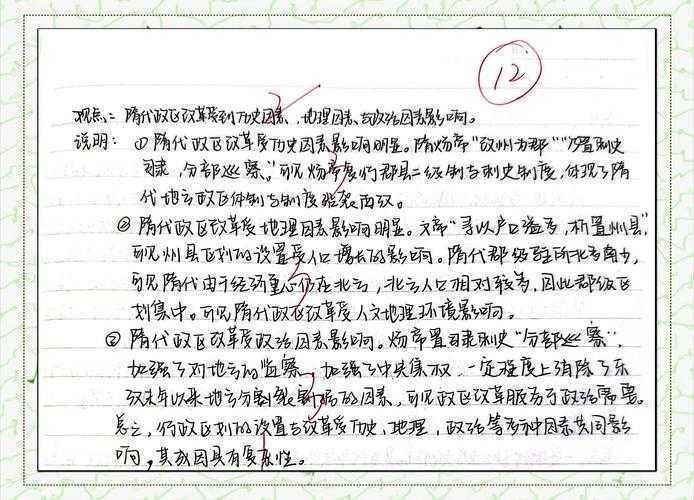 12
观点：隋代政区改革受到历史因素、地理因素与政治因素影响。
说明：①隋代政区改革受历史因素影响明显。隋炀帝“改州为郡”“置刺史
司隶，分部巡察。”可见炀帝度行郡县二级制与刺史制度，体现了隋
代地方政区体制与制度沿袭两汉。
②隋代政区改革受地理因素影响明显。文帝“寻以户口滋多，析置州县”
可见州县区划的设置受人口增长的影响。隋代郡级驻所北多南少，
可见隋代由于经济重心仍在北方，北方人口相对较多，因此郡级区
划集中。可见隋代政区改革受人文地理环境影响。
③隋代政区改革受政治因素影响。炀帝置司隶刺史“分部巡察”，
加强了对地方的监察，加强了中央集权，一定程度上消除了东
汉末年以来地方分割的因素，可见政区改革服务于政治需要。
总之，行政区划的设置与改革受历史、地理，政治等多种因素共同影
响，其成因具有复杂性。